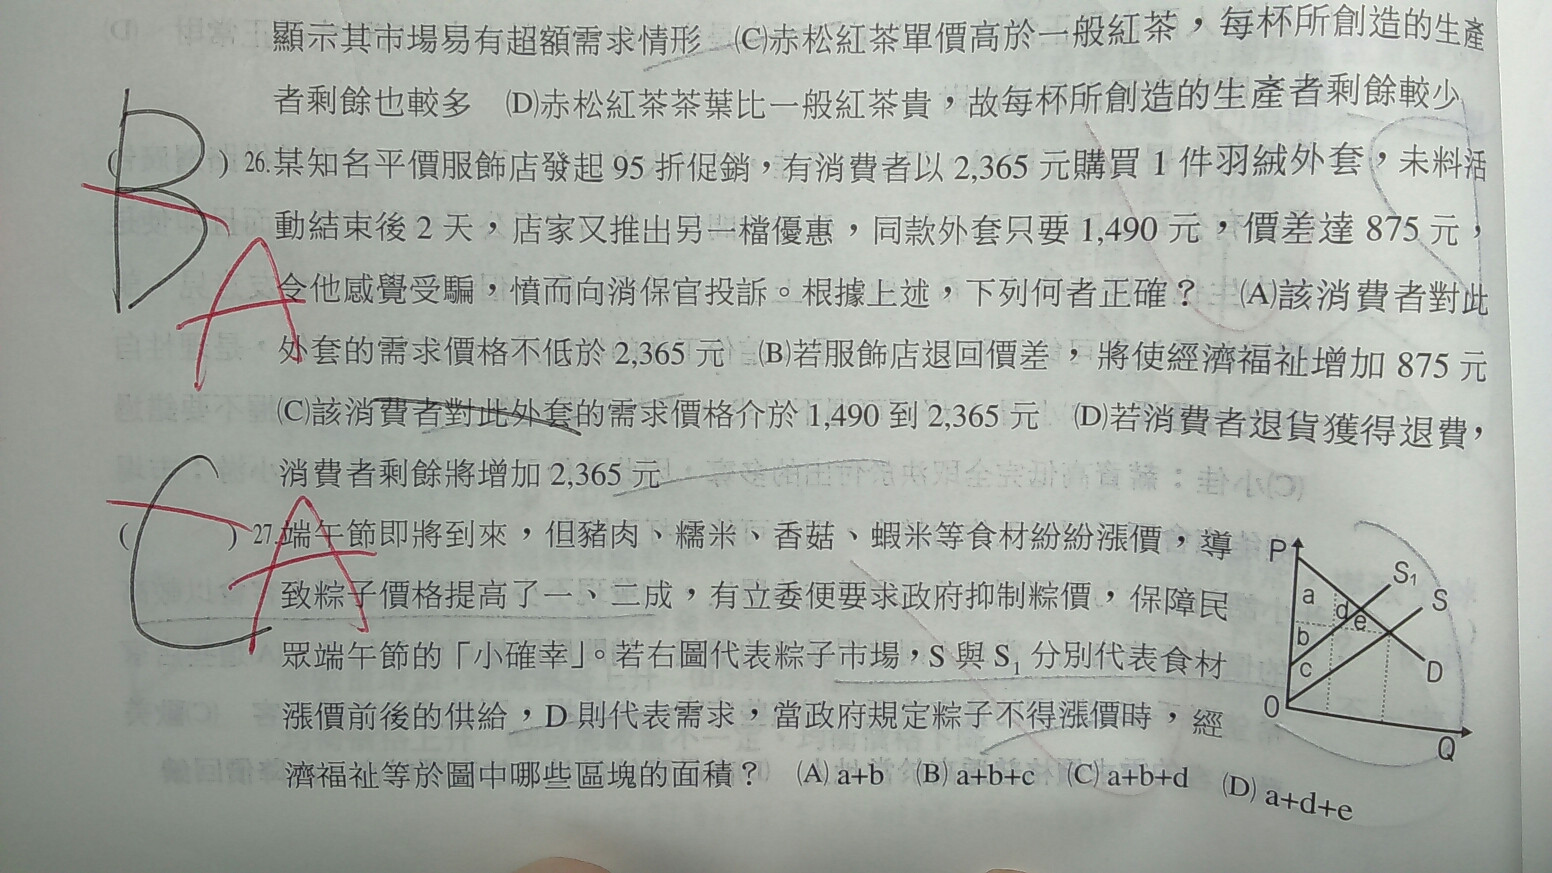 顯示其市場易有超額需求情形　(C)赤松紅茶單價高於一般紅茶，每杯所創造的生產
者剩餘也較多　(D)赤松紅茶茶葉比一般紅茶貴，故每杯所創造的生產者剩餘較少
B
(　) 26.某知名平價服飾店發起 95 折促銷，有消費者以 2,365 元購買 1 件羽絨外套，未料活
動結束後 2 天，店家又推出另一檔優惠，同款外套只要 1,490 元，價差達 875 元，
A
令他感覺受騙，憤而向消保官投訴。根據上述，下列何者正確？　(A)該消費者對此
外套的需求價格不低於 2,365 元　(B)若服飾店退回價差，將使經濟福祉增加 875 元
(C)該消費者對此外套的需求價格介於 1,490 到 2,365 元　(D)若消費者退貨獲得退費，
消費者剩餘將增加 2,365 元
C
A
(　) 27.端午節即將到來，但豬肉、糯米、香菇、蝦米等食材紛紛漲價，導
致粽子價格提高了一、二成，有立委便要求政府抑制粽價，保障民
眾端午節的「小確幸」。若右圖代表粽子市場，S 與 S1 分別代表食材
漲價前後的供給，D 則代表需求，當政府規定粽子不得漲價時，經
濟福祉等於圖中哪些區塊的面積？　(A) a+b　(B) a+b+c　(C) a+b+d　(D) a+d+e
P
S1
S
a
d
e
b
c
D
0
Q